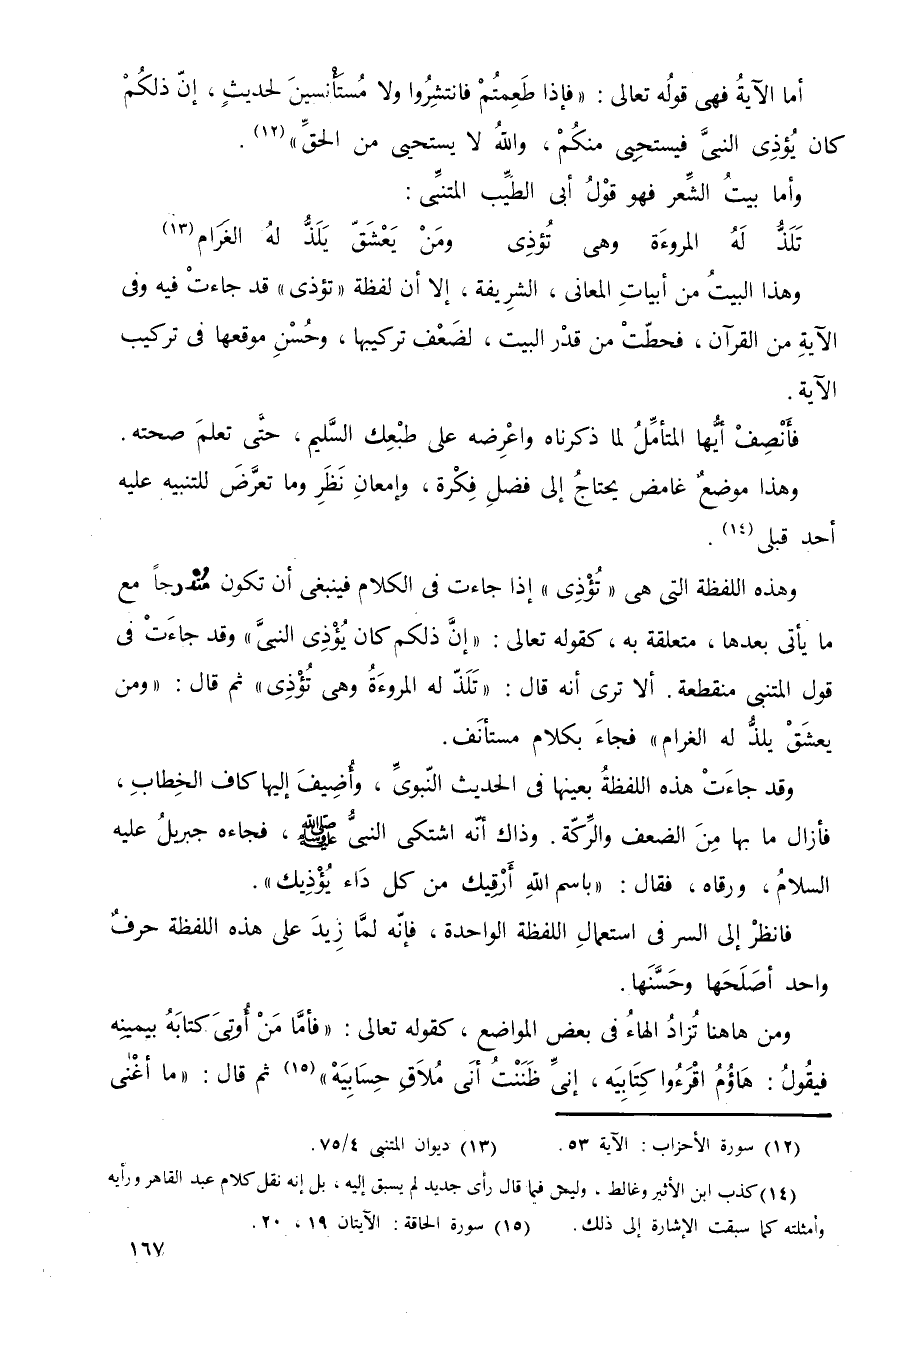 أما الآيةُ فهى قولُه تعالى : «فإذا طَعِمتُمْ فانتشِرُوا ولا مُستَأْنسينَ لحديثٍ ، إنّ ذلكُمْ
كان يُؤذِى النبىَّ فيستحيِى منكُمْ ، واللهُ لا يستحيى من الحقِّ» (١٢) .
وأما بيتُ الشِّعر فهو قوْلُ أبى الطيِّب المتنبِّى :
تَلَذُّ لَهُ المروءَة وهى تُؤذِى ومَنْ يَعْشَقّ يَلَذُّ لهُ الغَرَام (١٣)
وهذا البيتُ من أبياتِ المعانى ، الشريفة ، إلا أن لفظة «تؤذى» قد جاءتْ فيه وفى
الآيةِ من القرآن ، فحطّتْ من قدْر البيت ، لضَعْف تركيبها ، وحُسْنِ موقعها فى تركيب
الآية .
فأَنْصِفْ أيُّها المتأمِّلُ لما ذكرناه واعْرِضه على طبْعِك السَّليم ، حتَّى تعلمَ صحته .
وهذا موضعٌ غامض يحتاجُ إلى فضلِ فِكْرة ، وإمعانِ نَظَرِ وما تعرَّضَ للتنبيه عليه
أحد قبلى (١٤) .
وهذه اللفظة التى هى « تُؤْذِى » إذا جاءت فى الكلام فينبغى أن تكون مندرجاً مع
ما يأتى بعدها ، متعلقة به ، كقوله تعالى : «إنَّ ذلكم كان يُؤْذِى النبىَّ» وقد جاءَتْ فى
قول المتنبى منقطعة . ألا ترى أنه قال : «تَلَذّ له المروءَةُ وهى تُؤْذِى» ثم قال : «ومن
يعشَقْ يلذُّ له الغرام» فجاءَ بكلام مستأنَف .
وقد جاءَتْ هذه اللفظةُ بعينها فى الحديث النّبوىِّ ، وأُضِيفَ إليها كاف الخِطابِ ،
فأزال ما بها مِنَ الضعف والرِّكّة . وذاك أنّه اشتكى النبىُّ ﷺ ، فجاءه جبريلُ عليه
السلامُ ، ورقاه ، فقال : «باسم اللهِ أَرْقِيك من كل دَاء يُؤْذِيك» .
فانظرْ إلى السر فى استعمالِ اللفظة الواحدة ، فإنّه لمَّا زِيدَ على هذه اللفظة حرفٌ
واحد أصَلَحَها وحَسَّنَها .
ومن هاهنا تُزادُ الهاءُ فى بعض المواضع ، كقوله تعالى : «فأمَّا مَنْ أُوتِىَ كتابَهُ بيمينِه
فيقُولُ : هَاؤُمُ اقْرَءُوا كِتَابِيَه ، إنىِّ ظَنَنْتُ أنَى مُلاَقِ حِسَابِيَهْ» (١٥) ثم قال : «ما أغْنٰى
(١٢) سورة الأحزاب : الآية ٥٣ . (١٣) ديوان المتنبى ٧٥/٤ .
(١٤) كذب ابن الأثير وغالط ، وليس فيما قال رأى جديد لم يسبق إليه ، بل إنه نقل كلام عبد القاهر ورأيه
وأمثلته كما سبقت الإشارة إلى ذلك . (١٥) سورة الحاقة : الآيتان ١٩ ، ٢٠ .
١٦٧